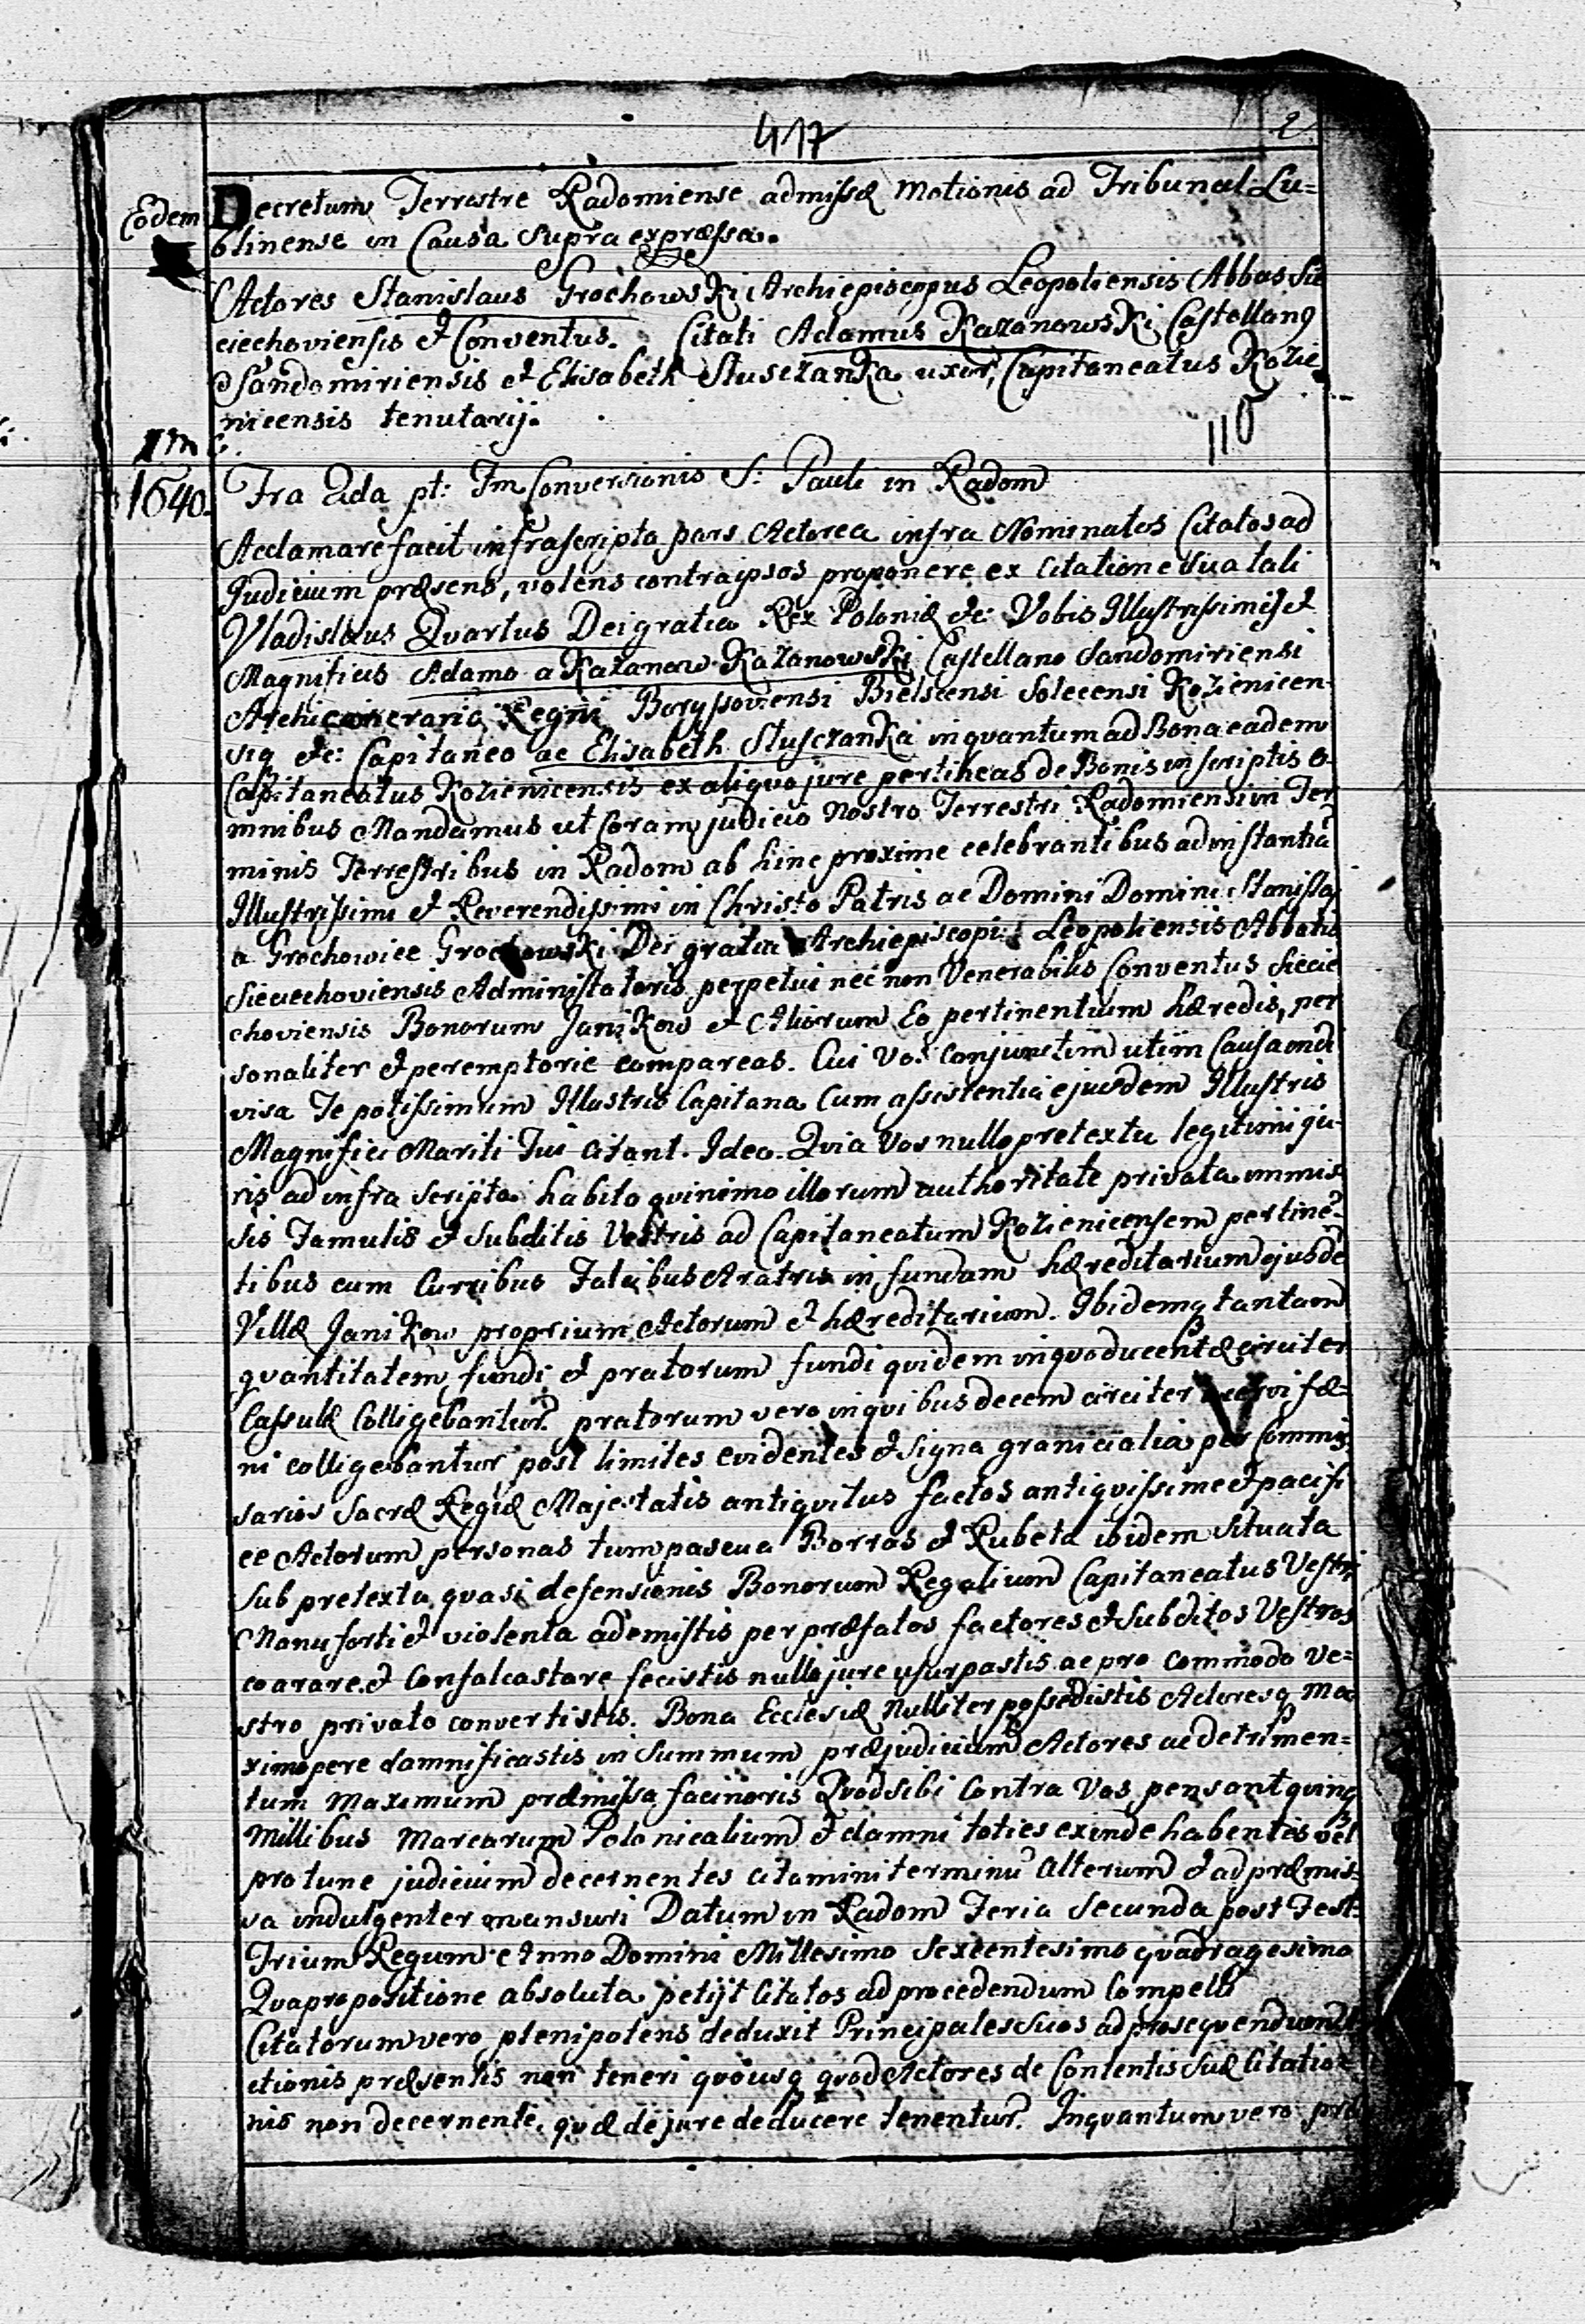 417
2
Eodem
Decretum Terrestre Radomiense admissæ Motionis ad Tribunal Lu=
blinense in Causa Supra expressa.
Actores Stanislaus Grochowski Archiepiscopus Leopoliensis Abbas Sie
ciechoviensis et Conventus. Citati Adamus Kazanowski Castellanq
Sandomiriensis et Elisabeth Sluszczanka uxor, Capitaneatus Kozie
nicensis tenutarij.
110
1640.
Fra 2da pt: Fm Conversionis S: Pauli in Radom
Acclamare facit infrascripta pars Actorea infra Nominatos Citatos ad
Judicium præsens, volens contra ipsos proponere ex Citatione sua tali
Vladislaus Quartus Dei gratia Rex Poloniæ etc: Vobis Illustrissimis et
Magnificis Adamo a Kazanow Kazanowski Castellano Sandomiriensi
Archicamerario Regni Boryssoviensi Bielscensi Solecensi Kozienicen
siq etc: Capitaneo ac Elisabeth Sluszczanka inquantum ad Bona eadem
Capitaneatus Kozienicensis ex aliquo jure pertineas de Bonis inscriptis o
mnibus Mandamus ut Coram judicio Nostro Terrestri Radomiensi in Ter
minis Terrestribus in Radom ab hinc proxime celebrantibus ad instantia
Illustrissimi et Reverendissimi in Christo Patris ac Domini Domini Stanislaj
a Grochowice Grochowski Dei gratia Archiepiscopi Leopoliensis Abbatis
Sieciechoviensis Administatoris perpetui nec non Venerabilis Conventus Siecie
choviensis Bonorum Janikow et Aliorum Eo pertinentium hæredis, per
sonaliter et peremptorie compareas. Cui Vos conjunctim utim Causa indi
visa Te potissimum Illustris Capitana Cum assistentia ejusdem Illustris
Magnifici Mariti Tui Citant. Ideo. Quia Vos nullo pretextu legitimi ju-
ris ad infra scripta habito quinimo illorum authoritate privata immis
sis Famulis et Subditis Vestris ad Capitaneatum Kozienicensem pertine-
tibus cum Curribus Falcibus Aratris in fundum hæreditarium ejusde
Villæ Janikow proprium Actorum et hæreditarium. Ibidemq tantam
quantitatem fundi et pratorum fundi quidem in quo ducentæ circiter
Cassulæ Colligebantur pratorum vero in quibus decem circiter acervi fæ=
ni colligebantur post limites evidentes et signa granicialia per Commis
sarios Sacræ Regiæ Majestatis antiquitus factos antiquissime et pacifi
ce Actorum personas tum pascua Borras et Rubeta ibidem situata
sub pretextu quasi defensionis Bonorum Regalium Capitaneatus Vestri
Manu forti et violenta ademistis per præfatos factores et Subditos Vestros
coarare et Confalcastare fecistis nullo jure usurpastis ac pro Commodo Ve=
stro privato convertistis. Bona Ecclesiæ Nulliter possedistis Actoresq ma
ximopere damnificastis in Summum præjudicium Actores ac detrimen=
tum Maximum præmissa facinoris Quod sibi Contra Vos pensant quinq
Millibus Marcarum Polonicalium et damni toties exinde habentes vel
pro tunc judicium decernentes citamini terminu Alterum et ad præmis-
sa indulgenter mansuri Datum in Radom Feria Secunda post Fest:
Trium Regum Anno Domini Millesimo Sexcentesimo quadragesimo
Qua propositione absoluta petijt Citatos ad procedendum Compelli
Citatorum vero plenipotens deduxit Principales Suos ad prosequendum
ctionis præsentis non teneri quousq quod Actores de Contentis Suæ Citatio
nis non decernente, quæ de jure deducere tenentur. Inquantum vero præ